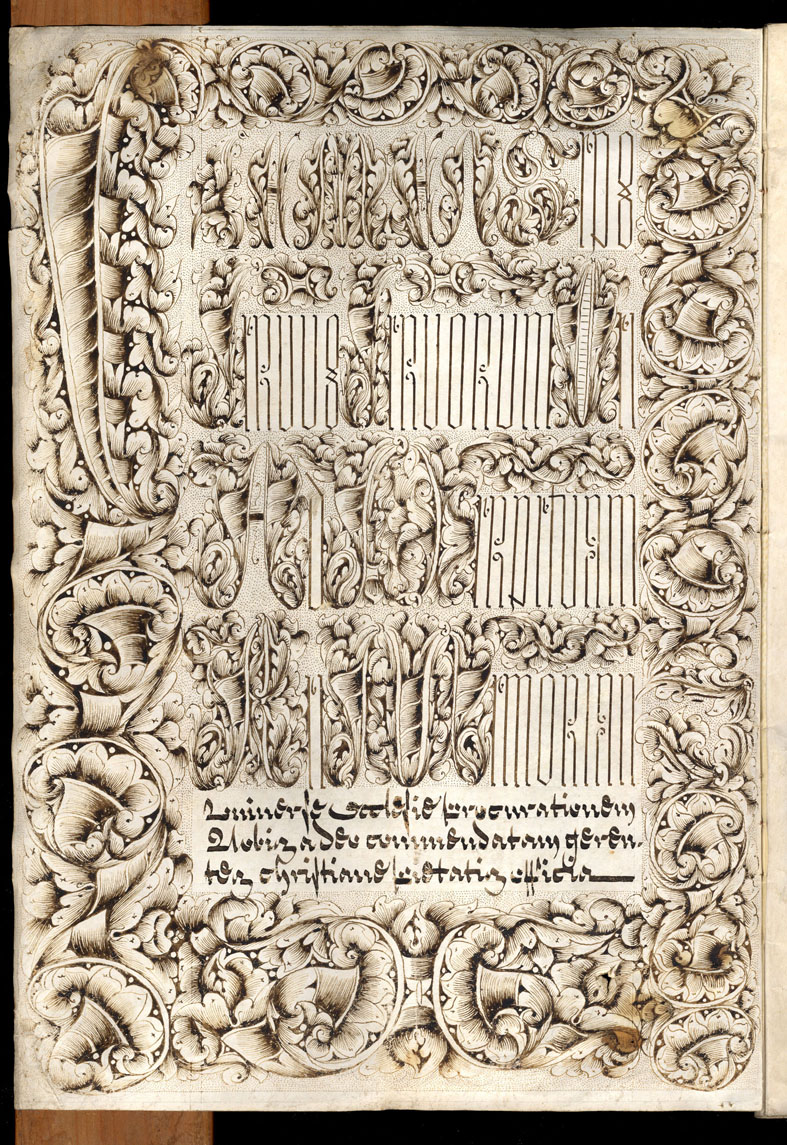 Seruus Seruorum Dei
Ad perpetuam
Rei memoriam
Vniuerse Ecclesie procurationem
Nobis a Deo commendatam geren-
tes christiane pietatis officia